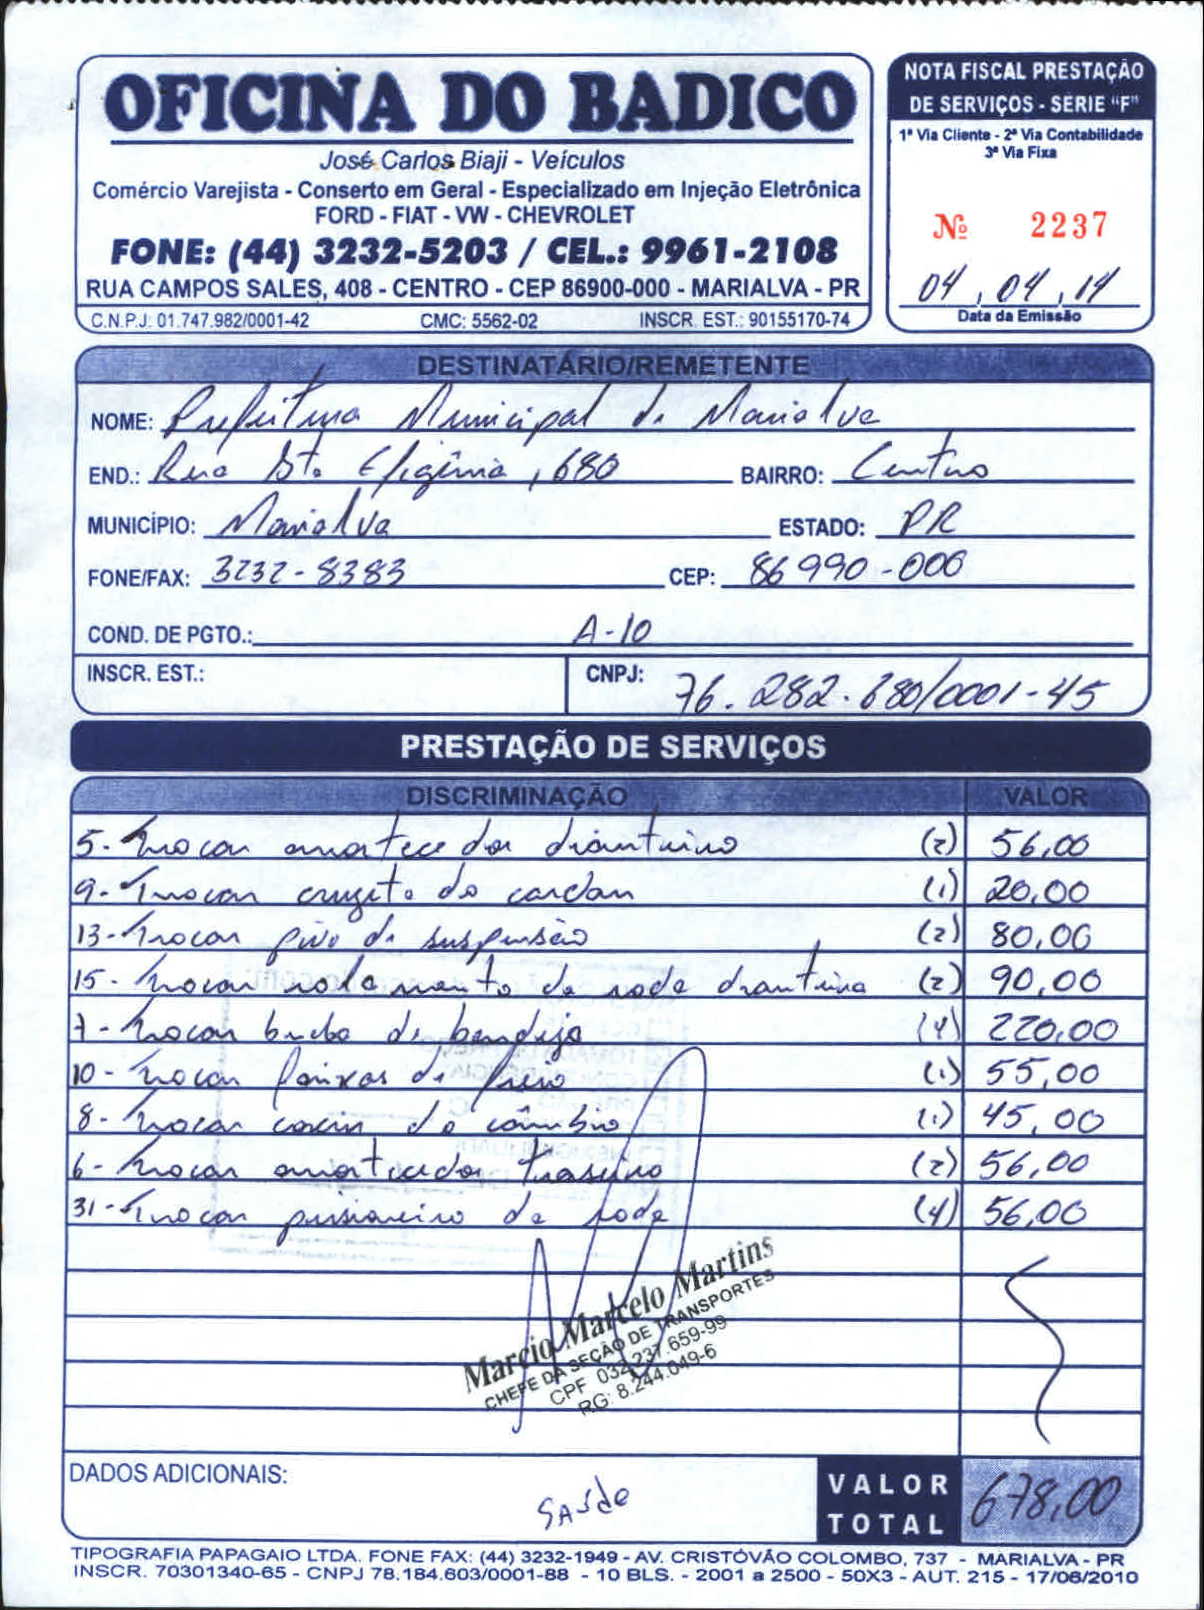 OFICINA DO BADICO
José Carlos Biaji - Veículos
Comércio Varejista - Conserto em Geral - Especializado em Injeção Eletrônica
FORD - FIAT - VW - CHEVROLET
FONE: (44) 3232-5203 / CEL.: 9961-2108
RUA CAMPOS SALES, 408 - CENTRO - CEP 86900-000 - MARIALVA - PR
C.N.P.J: 01.747.982/0001-42 CMC: 5562-02 INSCR. EST.: 90155170-74
NOTA FISCAL PRESTAÇÃO
DE SERVIÇOS - SÉRIE "F"
1ª Via Cliente - 2ª Via Contabilidade
3ª Via Fixa
Nº 2237
04, 04, 14
Data da Emissão
DESTINATÁRIO/REMETENTE
NOME: Prefeitura Municipal de Marialva
END.: Rua Sta Efigênia, 680 BAIRRO: Centro
MUNICÍPIO: Marialva ESTADO: PR
FONE/FAX: 3232-8383 CEP: 86990-000
COND. DE PGTO.: A-10
INSCR. EST.: CNPJ: 76.282.680/0001-45
PRESTAÇÃO DE SERVIÇOS
DISCRIMINAÇÃO VALOR
5- Trocar amortecedor dianteiro (2) 56,00
9- Trocar cruzeta do cardan (1) 20,00
13- Trocar pivo de suspensão (2) 80,00
15- Trocar rolamento da roda dianteira (2) 90,00
7- Trocar bucha de bandeja (4) 220,00
10- Trocar faixas de freio (1) 55,00
8- Trocar coxin do câmbio (1) 45,00
6- Trocar amortecedor traseiro (2) 56,00
31- Trocar prisioneiro da roda (4) 56,00
Marcio Marcelo Martins
CHEFE DA SEÇÃO DE TRANSPORTES
CPF 032.237.659-99
RG: 8.244.049-6
DADOS ADICIONAIS: Saúde
VALOR TOTAL 678,00
TIPOGRAFIA PAPAGAIO LTDA. FONE FAX: (44) 3232-1949 - AV. CRISTÓVÃO COLOMBO, 737 - MARIALVA - PR
INSCR. 70301340-65 - CNPJ 78.184.603/0001-88 - 10 BLS. - 2001 a 2500 - 50X3 - AUT. 215 - 17/06/2010